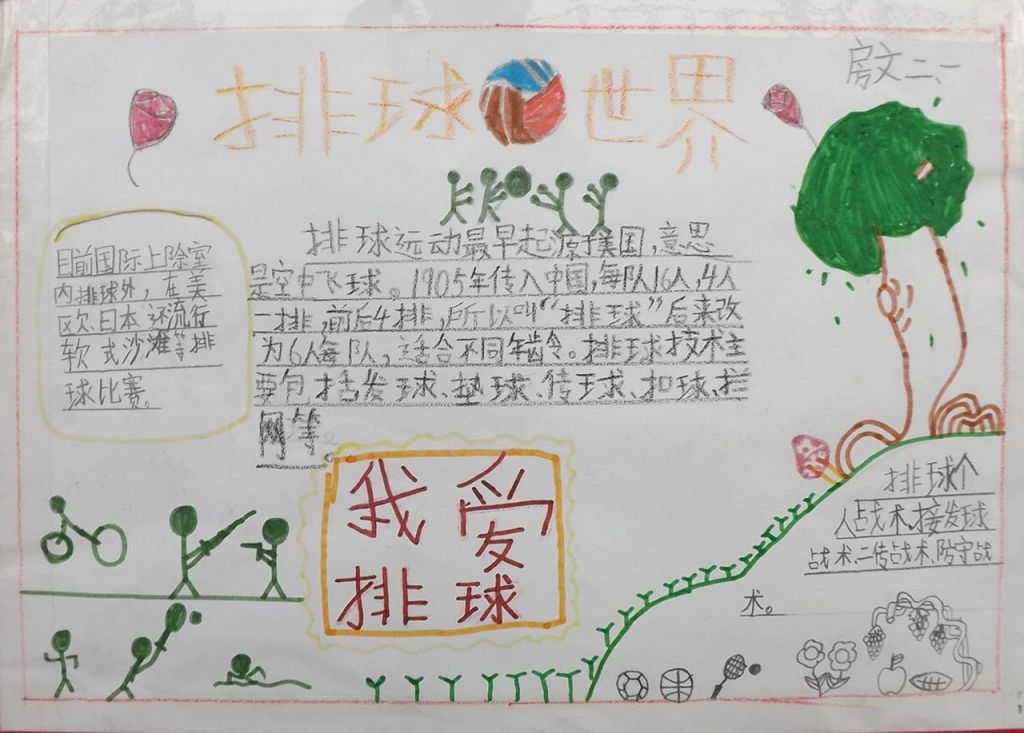 排球世界
房文二、一
排球运动最早起源美国,意思
是空中飞球。1905年传入中国,每队16人,4人
一排,前后4排,所以叫“排球”后来改
为6人每队,适合不同年龄。排球技术主
要包括发球、垫球、传球、扣球、拦
网等。
目前国际上除室
内排球外,在美
区欧日本还流行
软式沙滩等排
球比赛。
我爱
排球
排球个
人占战术,接发球
战术、二传战术、防守战
术。